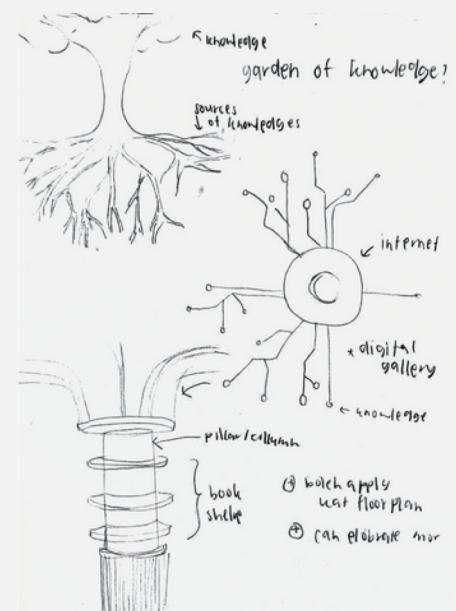 knowledge
garden of knowledge?
sources
of knowledges
internet
* digital
gallery
knowledge
pillow/collumn
book
shelf
boleh apply
kat floor plan
can elobrate mor